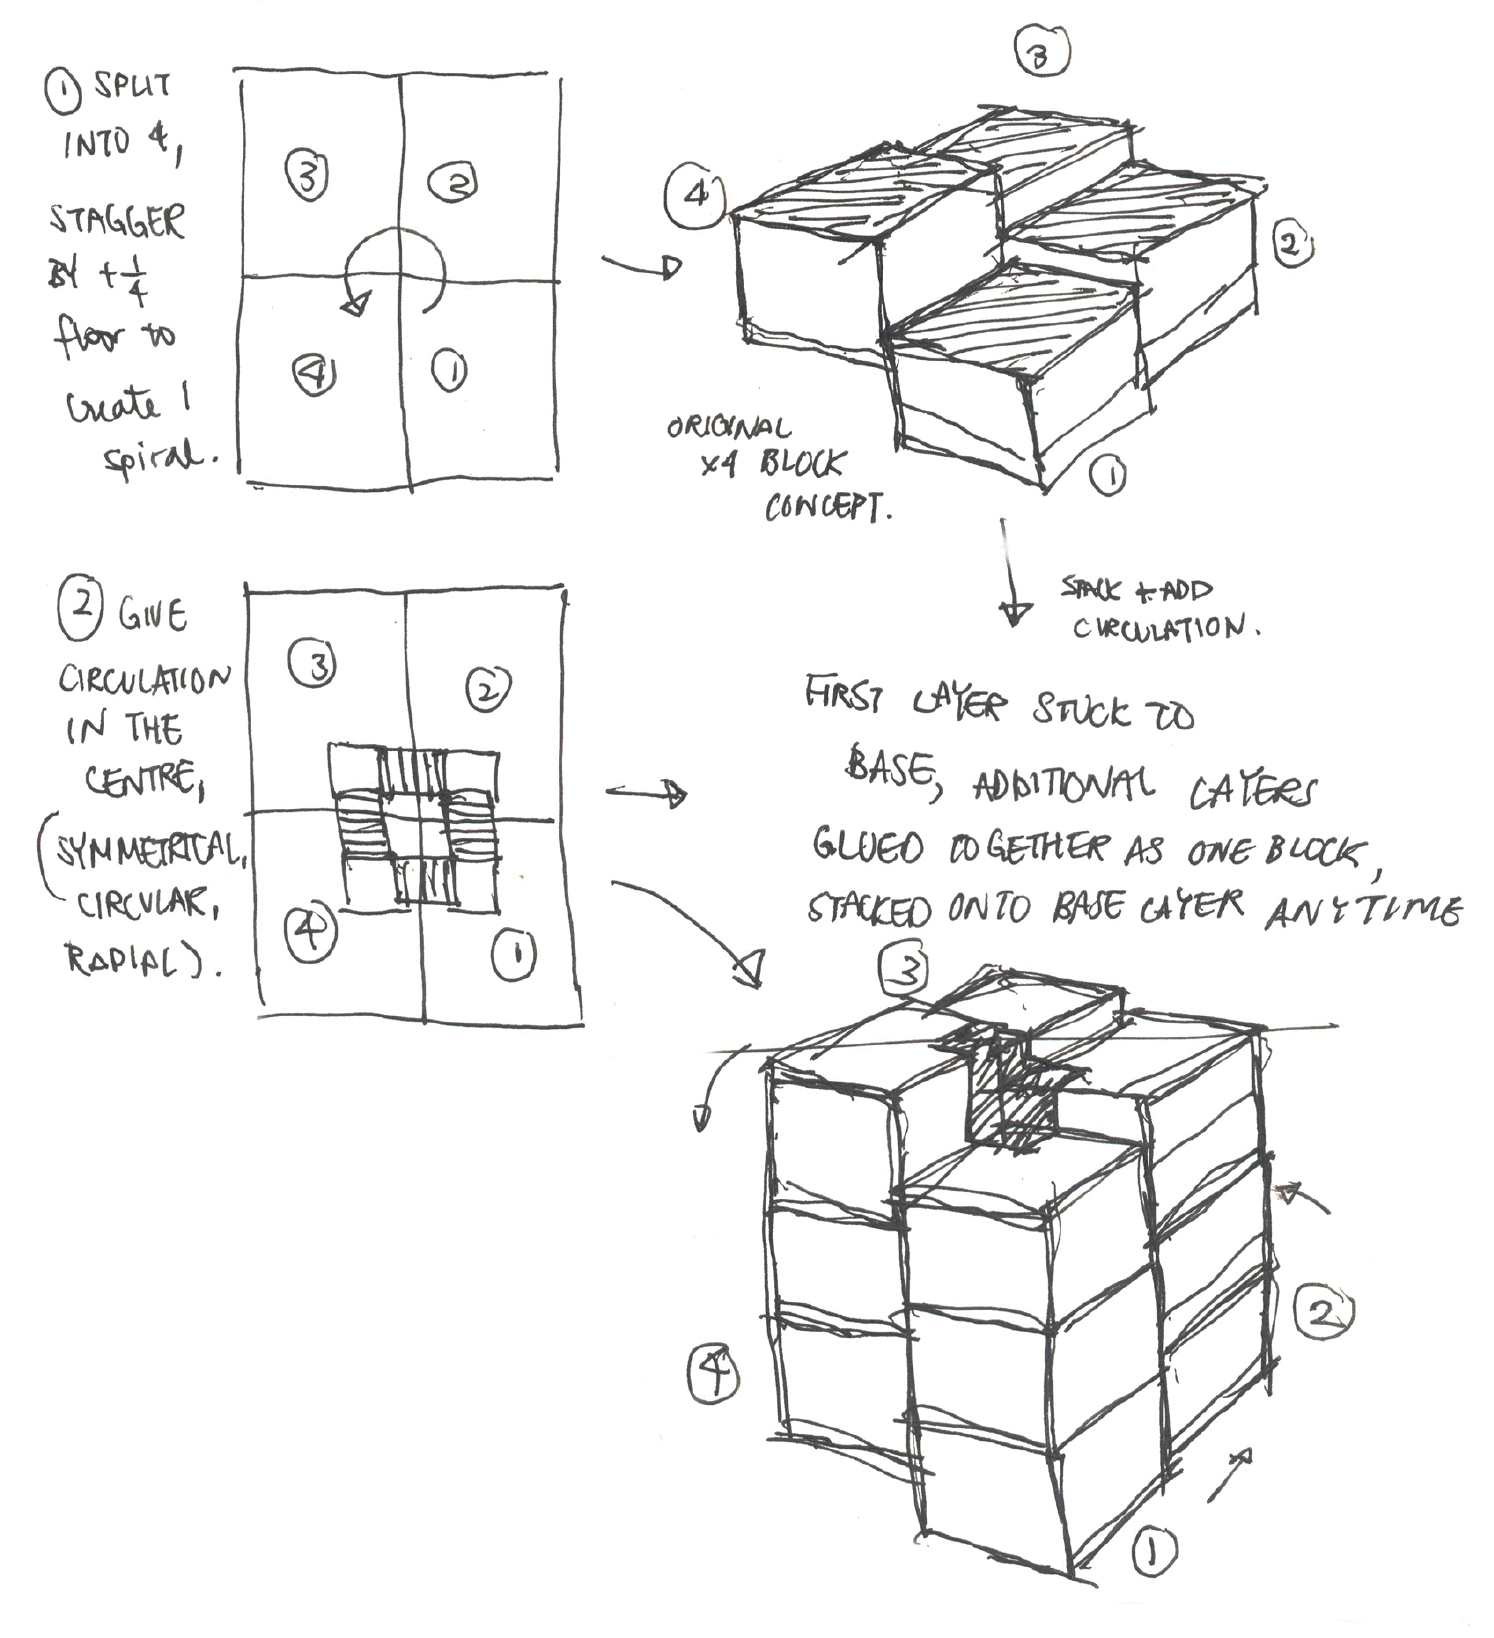 ① SPLIT
INTO 4,
STAGGER
BY + 1/4
floor to
create 1
spiral.
③
②
④
①
③
④
②
①
ORIGINAL
x4 BLOCK
CONCEPT.
STACK + ADD
CIRCULATION.
② GIVE
CIRCULATION
IN THE
CENTRE,
(SYMMETRICAL,
CIRCULAR,
RADIAL).
③
②
④
①
FIRST LAYER STUCK TO
BASE, ADDITIONAL LAYERS
GLUED TOGETHER AS ONE BLOCK,
STACKED ONTO BASE LAYER ANYTIME
③
②
④
①